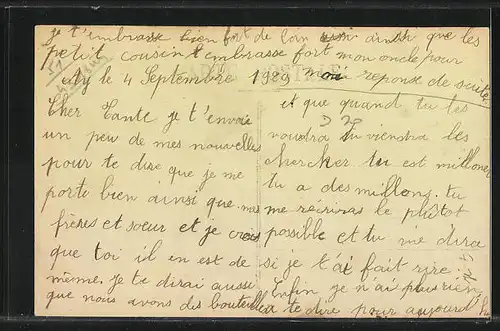 je t'embrasse bien fort de loin ainsi que les
petit cousin t'embrasse fort mon oncle pour
le 4 Septembre 1929 moi reponse de suite
CARTE POSTALE
Cher Tante je t'envoie
un peu de mes nouvelles
pour te dire que je me
porte bien ainsi que mes
frères et soeur et je crois
que toi il en est de
même. Je te dirai aussi
que nous avons des bouteilles
et que quand tu les
voudra tu viendra les
chercher tu est milloner
tu a des millons. tu
me récriras le plutôt
possible et tu me dira
si je t'ai fait rire.
Enfin je n'ai plus rien
a te dire pour aujourd'hui